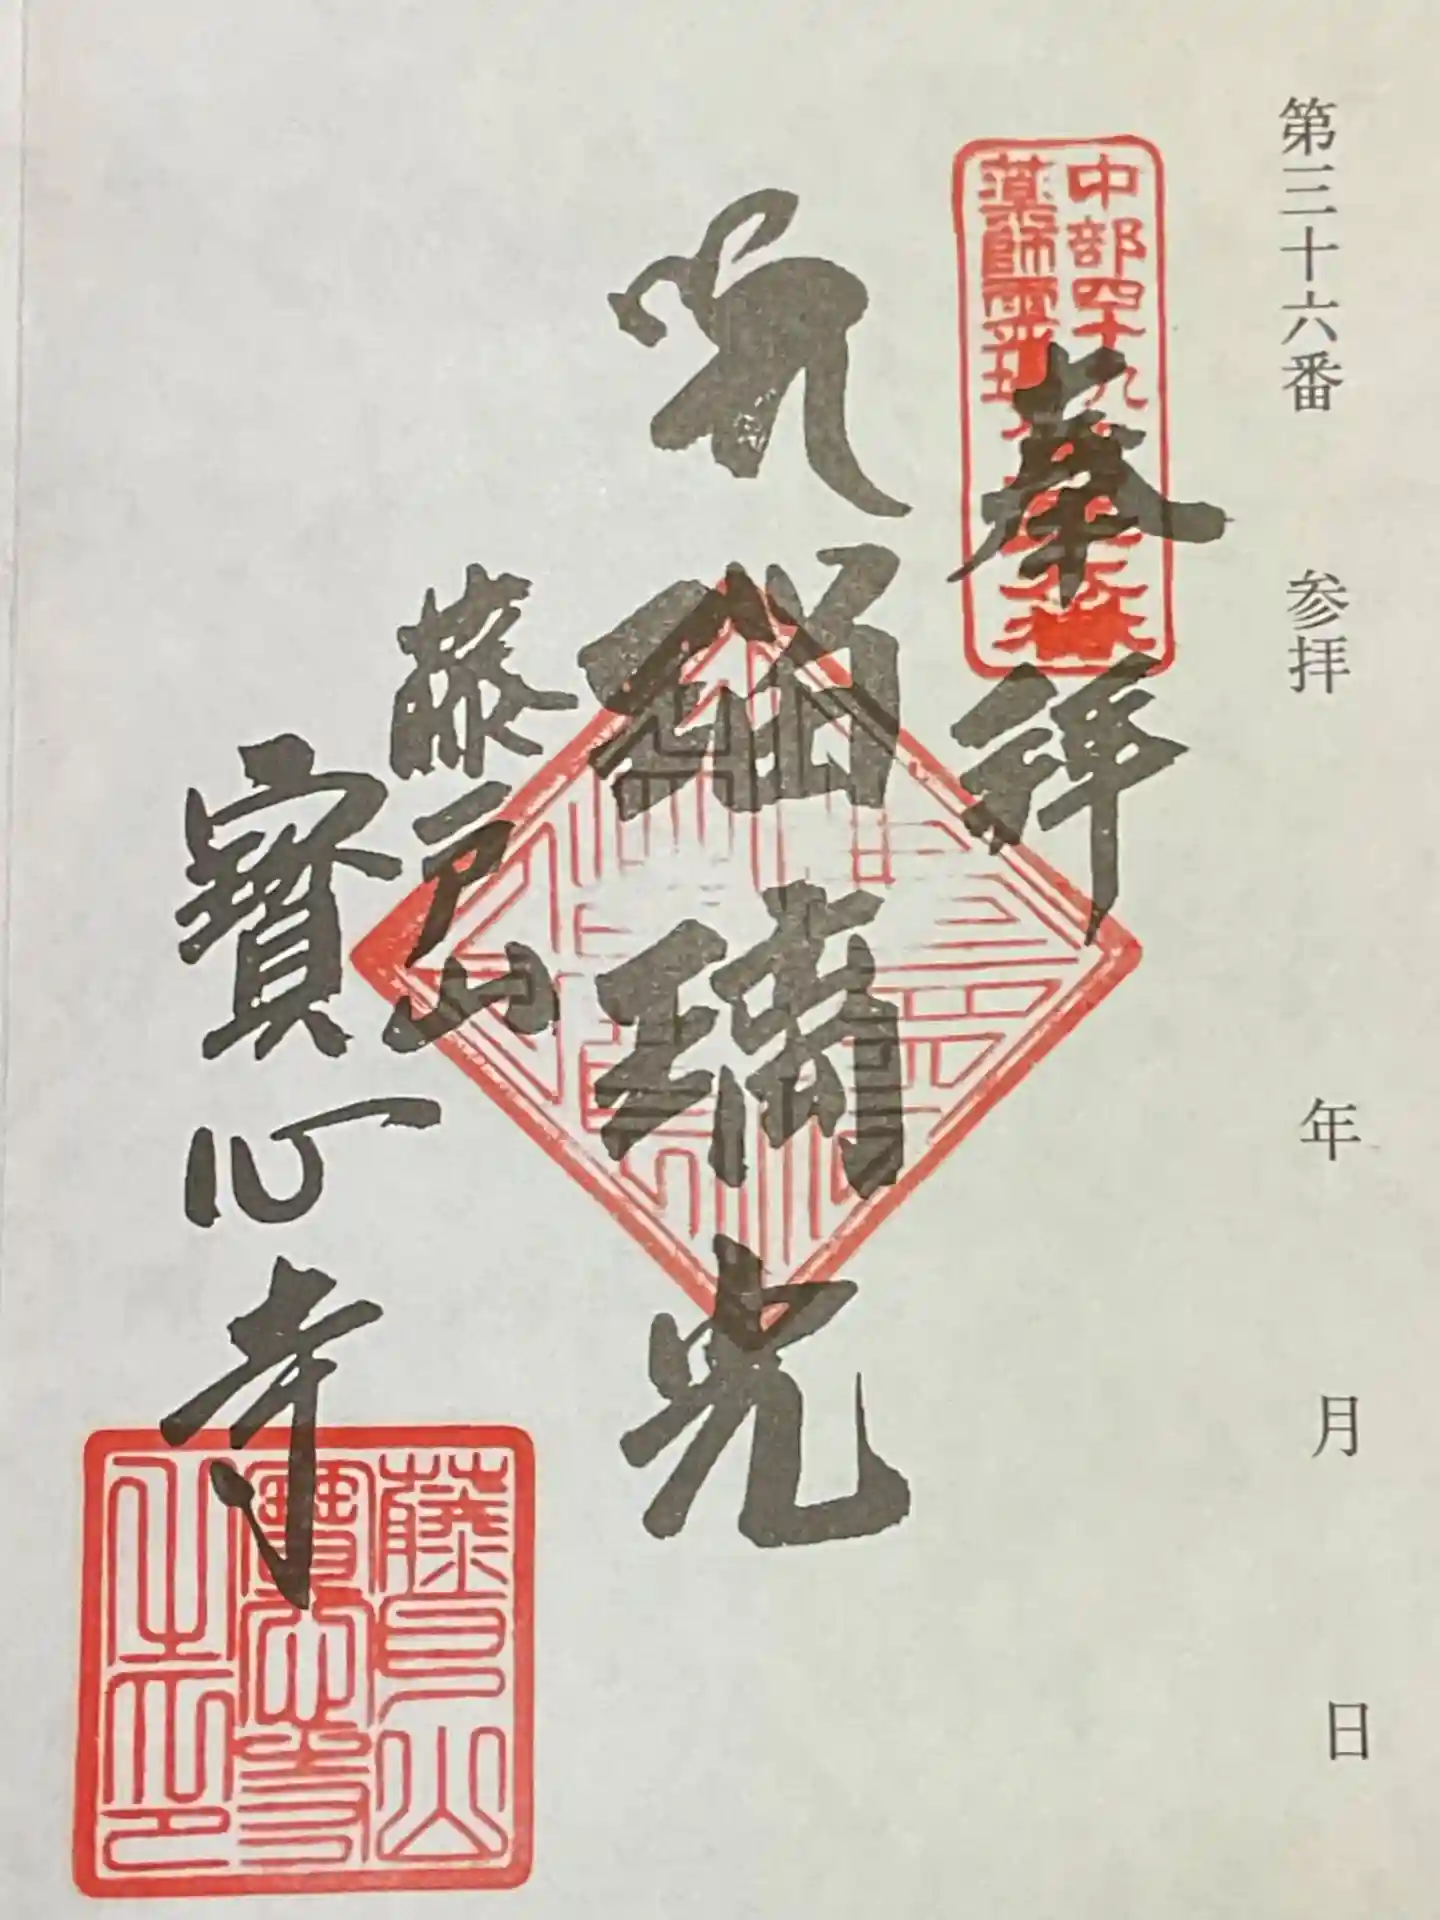 第三十六番 参拝 年 月 日
中部四十九
薬師霊場
奉拝
瑠璃光
藤戸山
寶心寺
藤戸山
寶心寺
之印